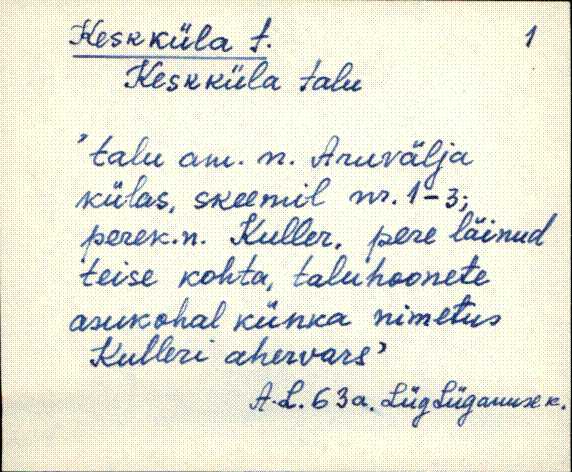 Keskküla t. 1
Keskküla talu
'talu am. n. Aruvälja
külas, skeemil nr. 1-3;
perek.n. Kuller. pere läinud
teise kohta, taluhoonete
asukohal künka nimetus
Kulleri ahervars'
A.L. 63a. Lüg Lüganuse k.